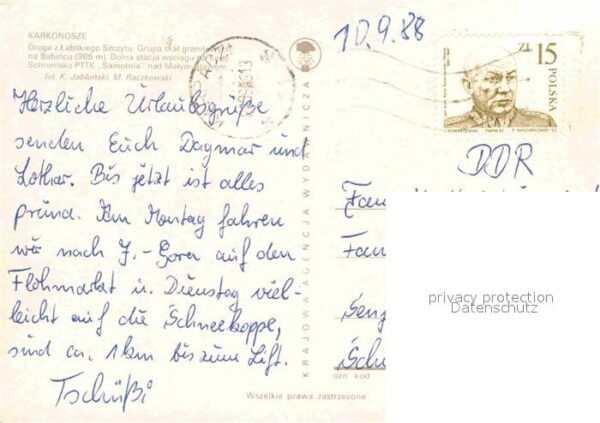 KARKONOSZE
Droga z Łabskiego Szczytu. Grupa skał granitowych
na Babińcu (989 m). Dolna stacja wyciągu na
Schronisko PTTK „Samotnia” nad Małym Stawem
fot. K. Jabłoński, M. Raczkowski
Herzliche Urlaubsgrüße
senden Euch Dagmar und
Lothar. Bis jetzt ist alles
prima. Am Montag fahren
wir nach J.-Gora auf den
Flohmarkt u. Dienstag viel-
leicht auf die Schneekoppe,
sind ca. 1 km bis zum Lift.
Tschüßi
KRAJOWA AGENCJA WYDAWNICZA
10.9.88
ZŁ 15
POLSKA
DDR
Fam
Fam
ozn kod
Wszelkie prawa zastrzeżone
privacy protection
Datenschutz